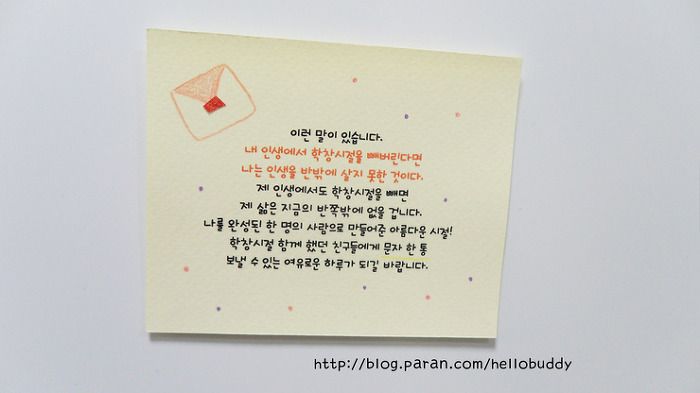 이런 말이 있습니다.
내 인생에서 학창시절을 빼버린다면
나는 인생을 반밖에 살지 못한 것이다.
제 인생에서도 학창시절을 빼면
제 삶은 지금의 반쪽밖에 없을 겁니다.
나를 완성된 한 명의 사람으로 만들어준 아름다운 시절!
학창시절 함께 했던 친구들에게 문자 한 통
보낼 수 있는 여유로운 하루가 되길 바랍니다.
http://blog.paran.com/hellobuddy